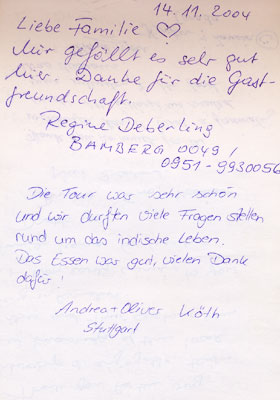 14.11.2004
Liebe Familie ♡
Mir gefällt es sehr gut
hier. Danke für die Gast-
freundschaft.
Regine Deberling
BAMBERG 0049 /
0951-9930056
Die Tour war sehr schön
und wir durften viele Fragen stellen
rund um das indische Leben.
Das Essen war gut, vielen Dank
dafür!
Andrea + Oliver Köth
Stuttgart